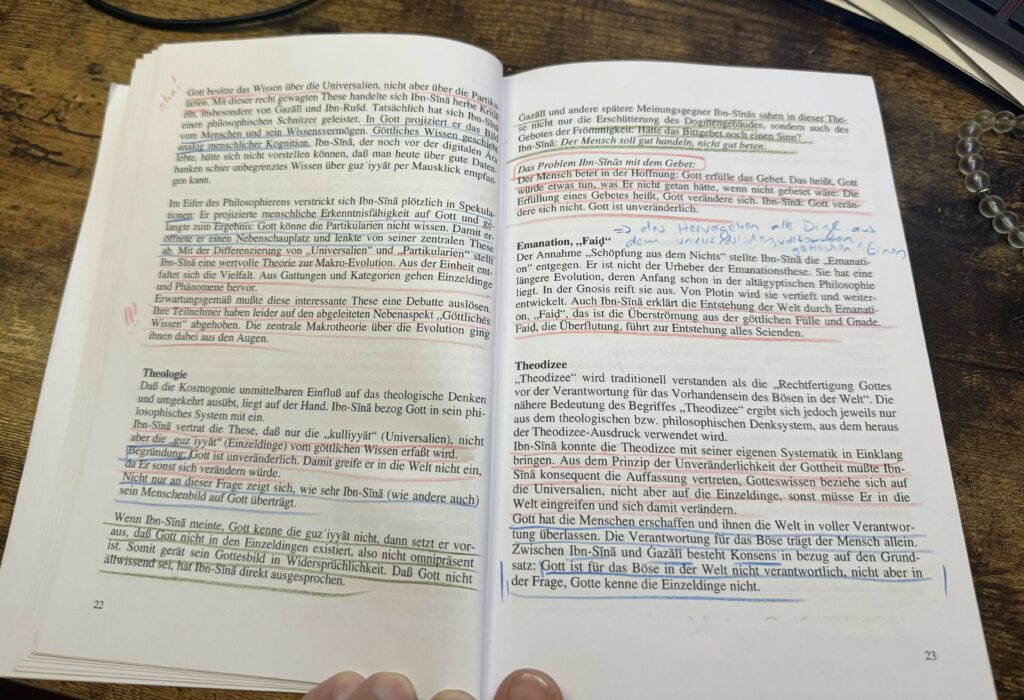 oha!
Gott besitze das Wissen über die Universalien, nicht aber über die Partiku-
larien. Mit dieser recht gewagten These handelte sich Ibn-Sīnā herbe Kritik
ein, insbesondere von Gazālī und Ibn-Rušd. Tatsächlich hat sich Ibn-Sīnā
einen philosophischen Schnitzer geleistet. In Gott projiziert er das Bild
vom Menschen und sein Wissensvermögen. Göttliches Wissen geschieht
analog menschlicher Kognition. Ibn-Sīnā, der noch vor der digitalen Ära
lebte, hätte sich nicht vorstellen können, daß man heute über gute Daten-
banken schier unbegrenztes Wissen über guz´iyyāt per Mausklick empfan-
gen kann.
Im Eifer des Philosophierens verstrickt sich Ibn-Sīnā plötzlich in Spekula-
tionen: Er projizierte menschliche Erkenntnisfähigkeit auf Gott und ge-
langte zum Ergebnis: Gott könne die Partikularien nicht wissen. Damit er-
öffnete er einen Nebenschauplatz und lenkte von seiner zentralen These
ab. Mit der Differenzierung von „Universalien" und „Partikularien" stellt
Ibn-Sīnā eine wertvolle Theorie zur Makro-Evolution. Aus der Einheit ent-
faltet sich die Vielfalt. Aus Gattungen und Kategorien gehen Einzeldinge
und Phänomene hervor.
Erwartungsgemäß mußte diese interessante These eine Debatte auslösen.
!!! Ihre Teilnehmer haben leider auf den abgeleiteten Nebenaspekt „Göttliches
Wissen" abgehoben. Die zentrale Makrotheorie über die Evolution ging
ihnen dabei aus den Augen.
Theologie
Daß die Kosmogonie unmittelbaren Einfluß auf das theologische Denken
und umgekehrt ausübt, liegt auf der Hand. Ibn-Sīnā bezog Gott in sein phi-
losophisches System mit ein.
Ibn-Sīnā vertrat die These, daß nur die „kulliyyāt" (Universalien), nicht
aber die „guz´iyyāt" (Einzeldinge) vom göttlichen Wissen erfaßt wird.
Begründung: Gott ist unveränderlich. Damit greife er in die Welt nicht ein,
da Er sonst sich verändern würde.
Nicht nur an dieser Frage zeigt sich, wie sehr Ibn-Sīnā (wie andere auch)
sein Menschenbild auf Gott überträgt.
Wenn Ibn-Sīnā meinte, Gott kenne die guz´iyyāt nicht, dann setzt er vor-
aus, daß Gott nicht in den Einzeldingen existiert, also nicht omnipräsent
ist. Somit gerät sein Gottesbild in Widersprüchlichkeit. Daß Gott nicht
allwissend sei, hat Ibn-Sīnā direkt ausgesprochen.
22
Gazālī und andere spätere Meinungsgegner Ibn-Sīnās sahen in dieser The-
se nicht nur die Erschütterung des Dogmengebäudes, sondern auch des
Gebotes der Frömmigkeit: Hätte das Bittgebet noch einen Sinn?
Ibn-Sīnā: Der Mensch soll gut handeln, nicht gut beten.
Das Problem Ibn-Sīnās mit dem Gebet:
Der Mensch betet in der Hoffnung: Gott erfülle das Gebet. Das heißt, Gott
würde etwas tun, was Er nicht getan hätte, wenn nicht gebetet wäre: Die
Erfüllung eines Gebetes heißt, Gott verändere sich. Ibn-Sīnā: Gott verän-
dere sich nicht. Gott ist unveränderlich.
⇒ das Hervorgehen alle Dinge aus
dem unveränderlichen, vollkommenen,
göttlichen Einen
Emanation, „Faiḍ"
Der Annahme „Schöpfung aus dem Nichts" stellte Ibn-Sīnā die „Emanati-
on" entgegen. Er ist nicht der Urheber der Emanationsthese. Sie hat eine
längere Evolution, deren Anfang schon in der altägyptischen Philosophie
liegt. In der Gnosis reift sie aus. Von Plotin wird sie vertieft und weiter-
entwickelt. Auch Ibn-Sīnā erklärt die Entstehung der Welt durch Emanati-
on, „Faiḍ", das ist die Überströmung aus der göttlichen Fülle und Gnade.
Faiḍ, die Überflutung, führt zur Entstehung alles Seienden.
Theodizee
„Theodizee" wird traditionell verstanden als die „Rechtfertigung Gottes
vor der Verantwortung für das Vorhandensein des Bösen in der Welt". Die
nähere Bedeutung des Begriffes „Theodizee" ergibt sich jedoch jeweils nur
aus dem theologischen bzw. philosophischen Denksystem, aus dem heraus
der Theodizee-Ausdruck verwendet wird.
Ibn-Sīnā konnte die Theodizee mit seiner eigenen Systematik in Einklang
bringen. Aus dem Prinzip der Unveränderlichkeit der Gottheit mußte Ibn-
Sīnā konsequent die Auffassung vertreten, Gotteswissen beziehe sich auf
die Universalien, nicht aber auf die Einzeldinge, sonst müsse Er in die
Welt eingreifen und sich damit verändern.
Gott hat die Menschen erschaffen und ihnen die Welt in voller Verantwor-
tung überlassen. Die Verantwortung für das Böse trägt der Mensch allein.
Zwischen Ibn-Sīnā und Gazālī besteht Konsens in bezug auf den Grund-
satz: Gott ist für das Böse in der Welt nicht verantwortlich, nicht aber in
der Frage, Gotte kenne die Einzeldinge nicht.
23